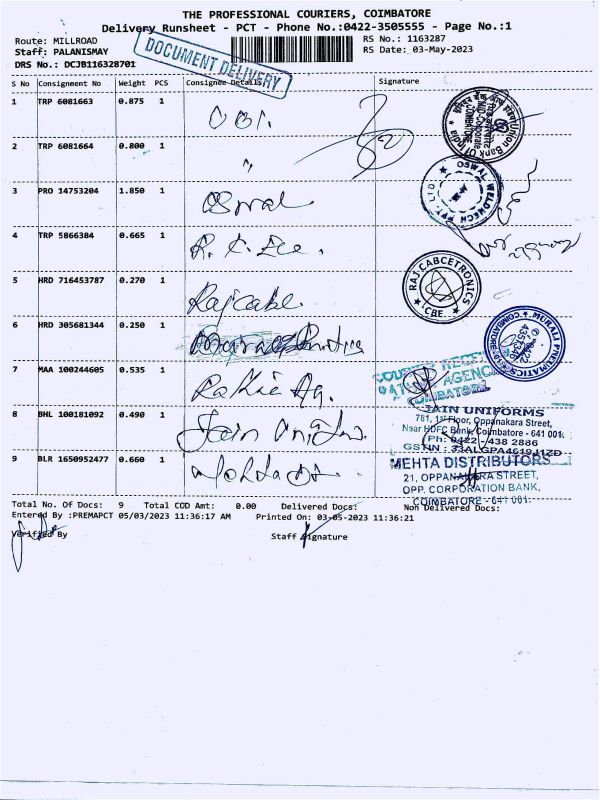 THE PROFESSIONAL COURIERS, COIMBATORE
Delivery Runsheet - PCT - Phone No.:0422-3505555 - Page No.:1
Route: MILLROAD
RS No.: 1163287
Staff: PALANISMAY
RS Date: 03-May-2023
DRS No.: DCJB116328701
DOCUMENT DELIVERY
S No Consignment No Weight PCS Consignee Details Signature
1 TRP 6081663 0.875 1 UBI.
Union Bank Of India
2 TRP 6081664 0.800 1 "
OSWAL WELDMECH PVT. LTD.
3 PRO 14753204 1.850 1 Oswal
4 TRP 5866384 0.665 1
5 HRD 716453787 0.270 1 Rajcabe.
RAJ CABCETRONICS
CBE.
6 HRD 305681344 0.250 1
MURALI PNEUMATICS
7 MAA 100244605 0.535 1
COIMBATORE
8 BHL 100181092 0.490 1 Jain Unifo.
JAIN UNIFORMS
781, 1st Floor, Oppanakara Street,
Near HDFC Bank, Coimbatore - 641 001.
Ph: 0422 - 438 2886
GSTNN : 33ALGPA4619J1ZD
9 BLR 1650952477 0.660 1
MEHTA DISTRIBUTORS
21, OPPANAKARA STREET,
OPP. CORPORATION BANK,
COIMBATORE - 641 001.
Total No. Of Docs: 9 Total COD Amt: 0.00 Delivered Docs: Non Delivered Docs:
Entered By :PREMAPCT 05/03/2023 11:36:17 AM Printed On: 03-05-2023 11:36:21
Verified By Staff Signature